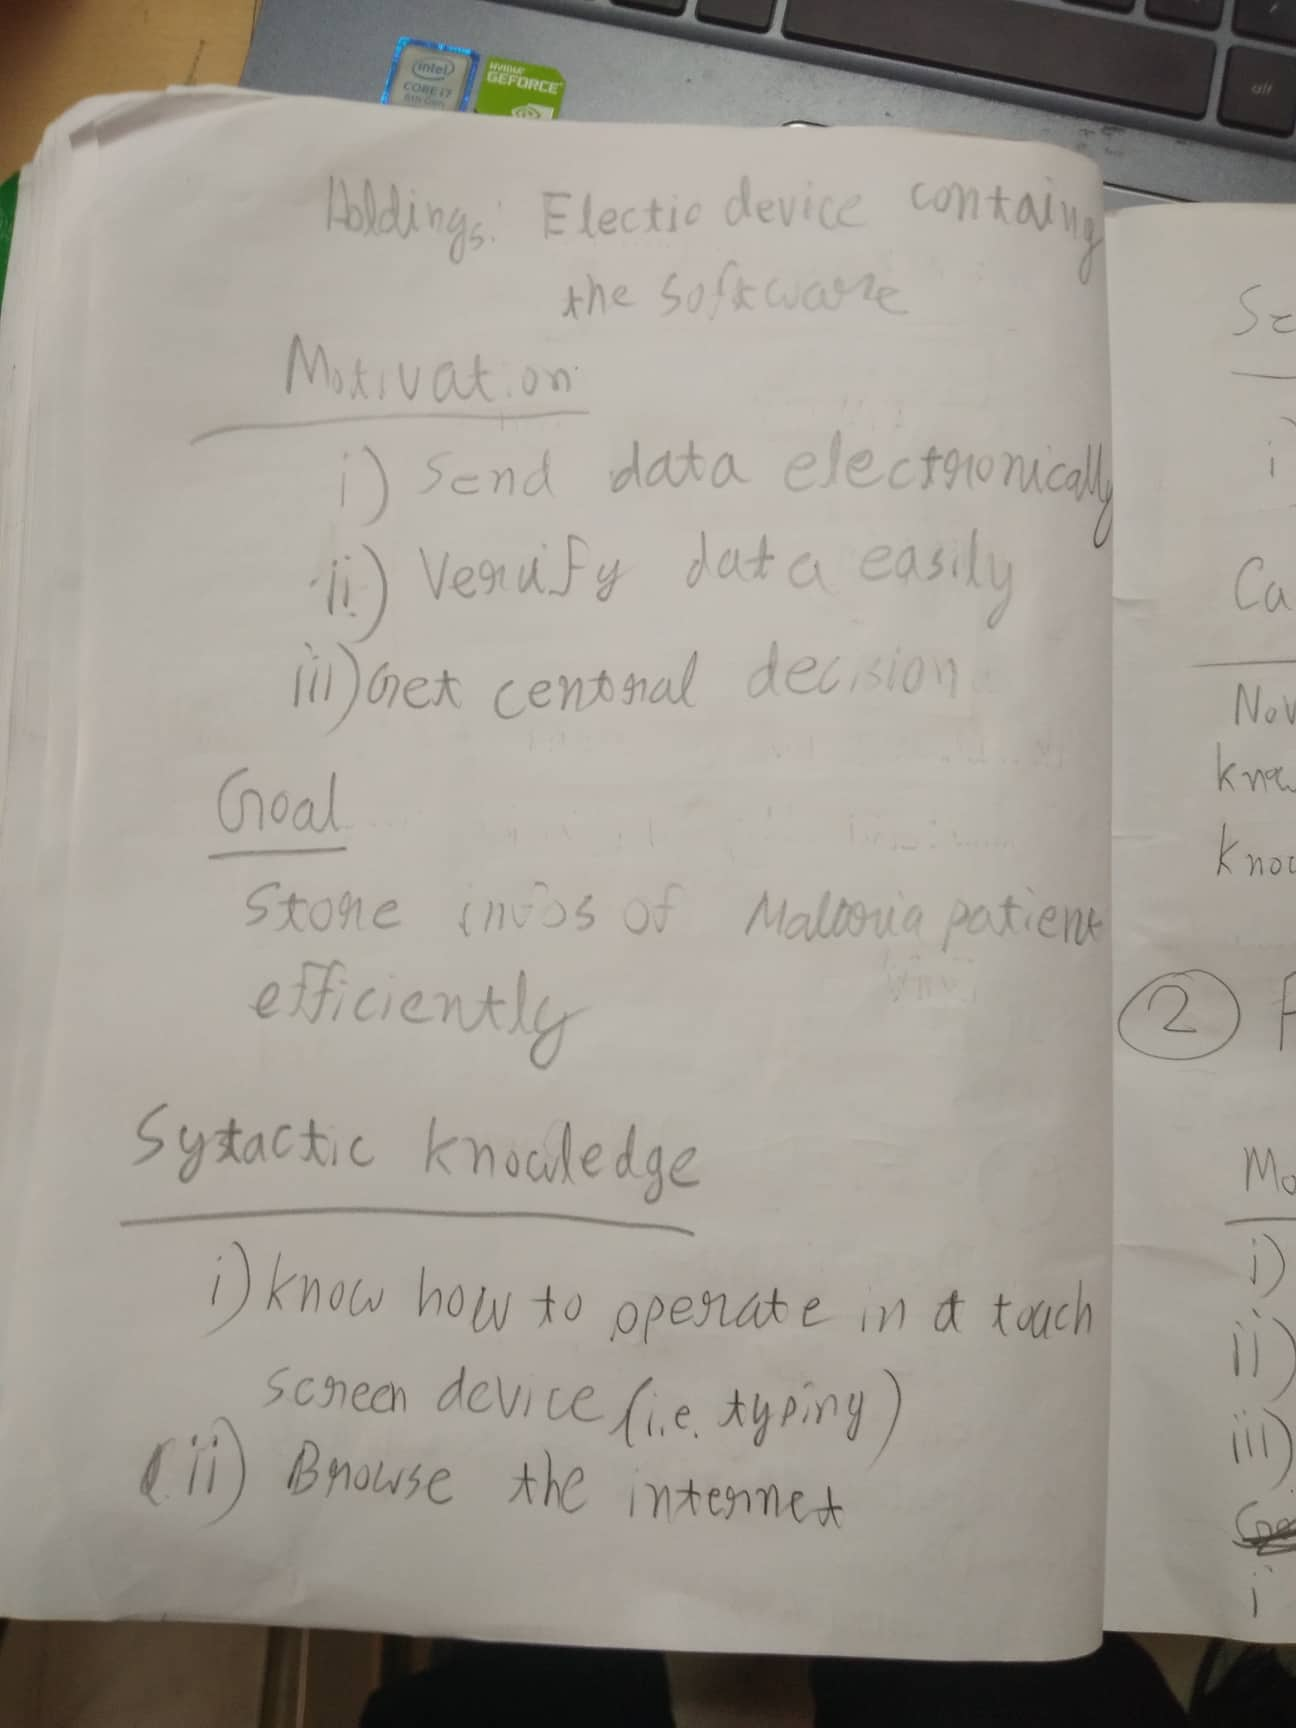 intel
CORE i7
8th Gen
NVIDIA
GEFORCE
alt
Holdings: Electic device containg
the software
Motivation
i) Send data electronically
ii) Verify data easily
iii) Get central decision
Goal
Store infos of Malaria patient
efficiently
Sytactic knowledge
i) know how to operate in a touch
screen device (i.e. typing)
(ii) Browse the internet
Se
i)
Ca
Nov
know
know
2
Mo
i)
ii)
iii)
i